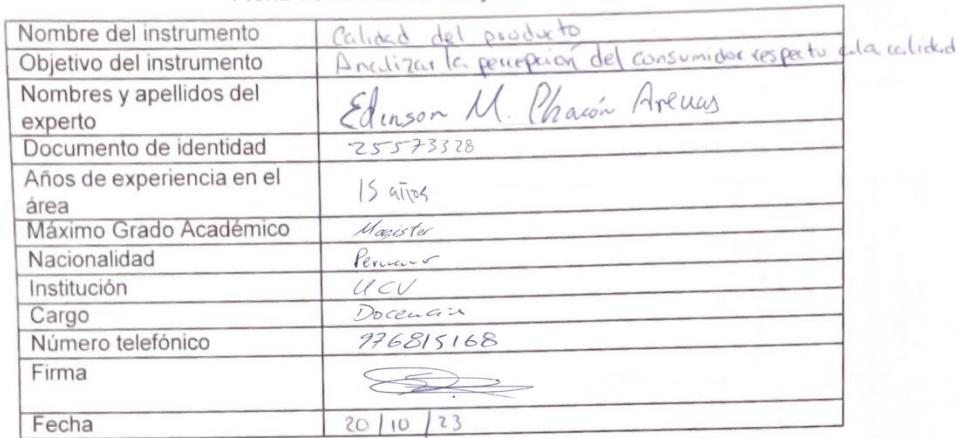 Nombre del instrumento Calidad del producto
Objetivo del instrumento Analizar la percepción del consumidor respecto a la calidad
Nombres y apellidos del
experto Edinson M. Chacón Arenas
Documento de identidad 25573328
Años de experiencia en el
área 15 años
Máximo Grado Académico Magister
Nacionalidad Peruano
Institución UCV
Cargo Docencia
Número telefónico 976815168
Firma
Fecha 20/10/23